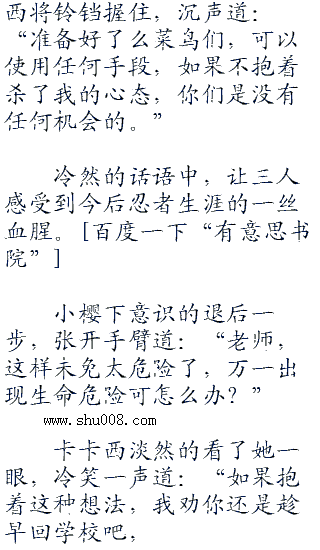 西将铃铛握住，沉声道：
“准备好了么菜鸟们，可以
使用任何手段，如果不抱着
杀了我的心态，你们是没有
任何机会的。”
冷然的话语中，让三人
感受到今后忍者生涯的一丝
血腥。[百度一下“有意思书
院”]
小樱下意识的退后一
步，张开手臂道：“老师，
这样未免太危险了，万一出
现生命危险可怎么办？”
www.shu008.com
卡卡西淡然的看了她一
眼，冷笑一声道：“如果抱
着这种想法，我劝你还是趁
早回学校吧，